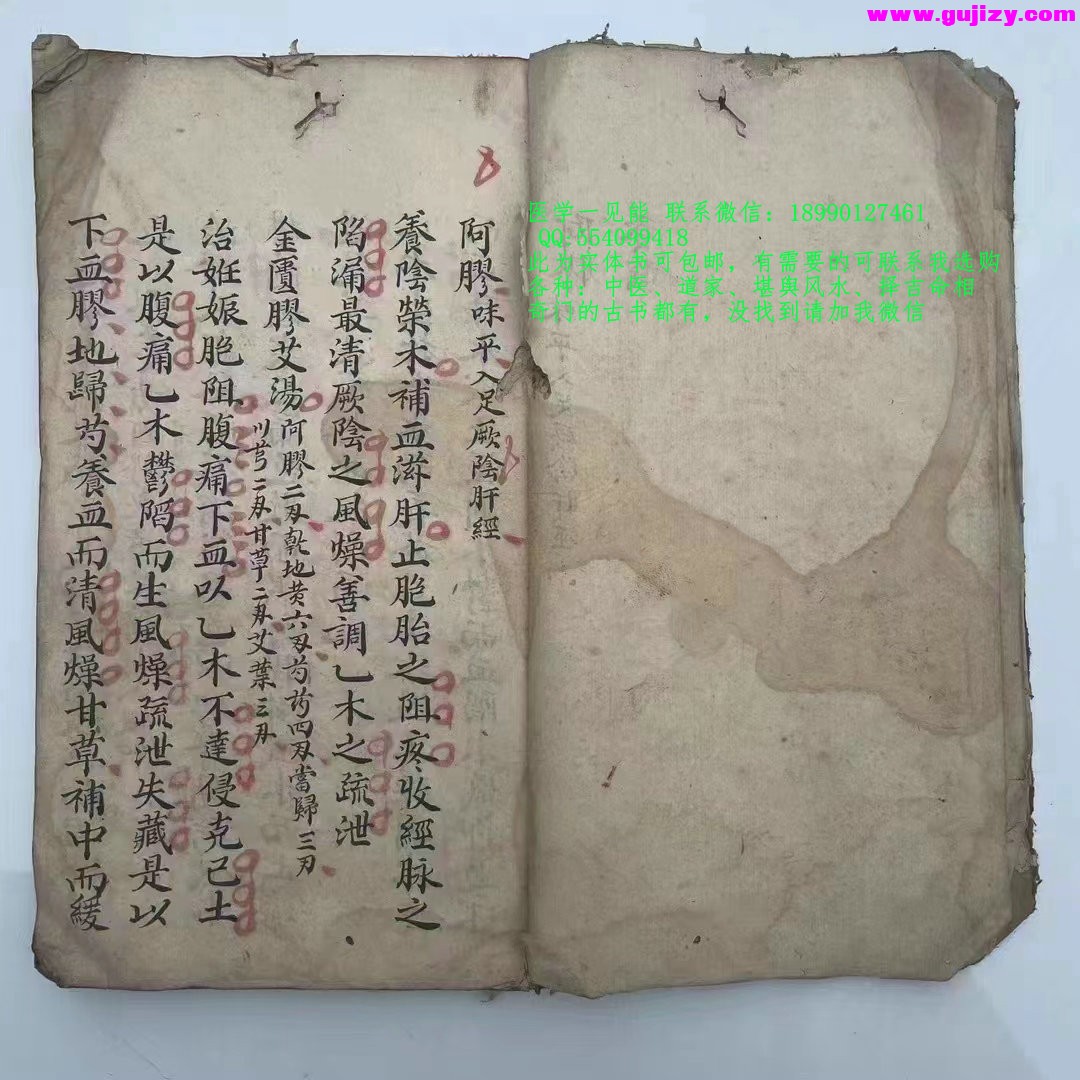 www.gujizy.com
医学一见能 联系微信：18990127461
QQ:554099418
此为实体书可包邮，有需要的可联系我选购
各种：中医、道家、堪舆风水、择吉命相
奇门的古书都有，没找到请加我微信
阿膠味平入足厥陰肝經
養陰榮木補血滋肝止胞胎之阻疼收經脉之
陷漏最清厥陰之風燥善調乙木之疏泄
金匱膠艾湯阿膠二刄乾地黄六刄芍药四刄當歸三刃
川芎二刄甘草二刄艾葉三刃
治姙娠胞阻腹痛下血以乙木不達侵克己土
是以腹痛乙木鬱陷而生風燥疏泄失藏是以
下血膠地歸芍養血而清風燥甘草補中而緩